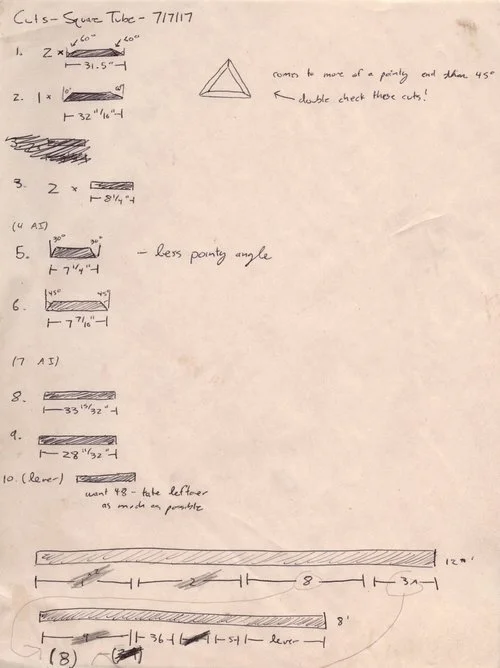 Cuts - Square Tube - 7/7/17
60° 60°
1. 2 ×
31.5"
comes to more of a pointy end than 45°
double check these cuts!
2. 1 ×
32 11/16"
3. 2 ×
8 1/4"
(4 Al)
30° 30°
5.
7 1/4"
- less pointy angle
45° 45°
6.
7 7/16"
(7 Al)
8.
33 15/32"
9.
28 11/32"
10. (lever)
want 48 - take leftover
as much as possible
8
8'
36 5 lever
(8)